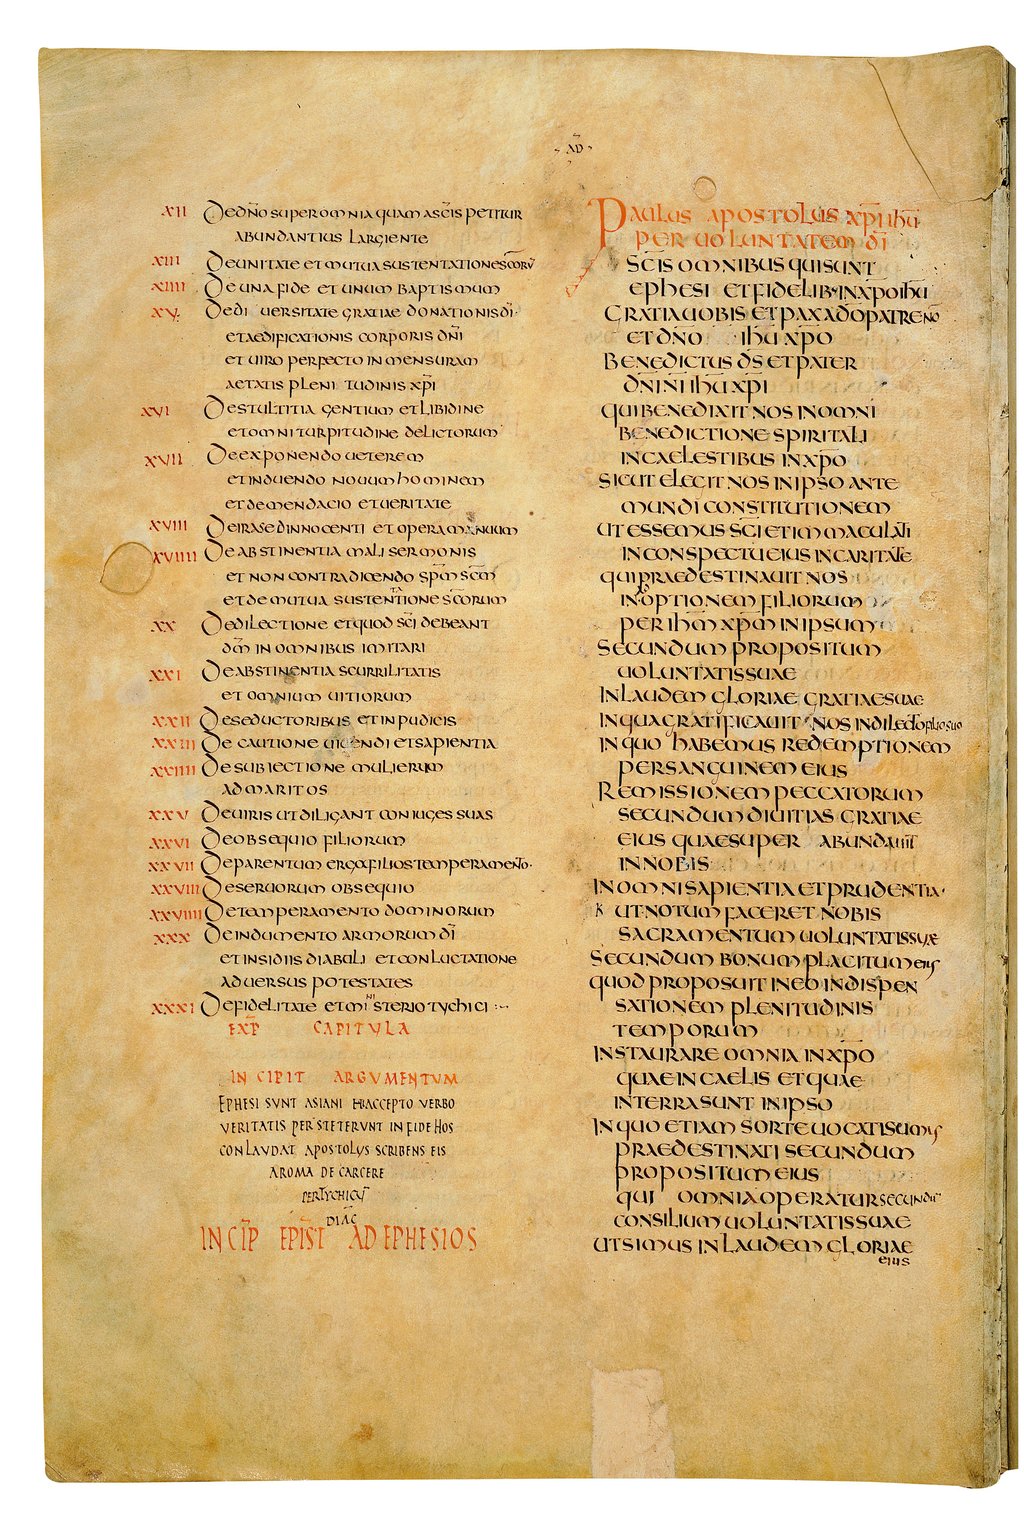 AD
XII De dno super omnia quam ascis petitur
abundantius largiente
XIII De unitate et mutua sustentatione scorū
XIIII De una fide et unum baptismum
XV De diuersitate gratiae donationis di
et aedificationis corporis dni
et uiro perfecto in mensuram
aetatis plenitudinis xpi
XVI De stultitia gentium et libidine
et omni turpitudine delictorum
XVII De exponendo ueterem
et induendo nouum hominem
et de mendacio et ueritate
XVIII De irase d innocenti et opera manuum
XVIIII De abstinentia mali sermonis
et non contradicendo spm scm
et de mutua sustentatione scorum
XX De dilectione et quod sci debeant
dm in omnibus imitari
XXI De abstinentia scurrilitatis
et omnium uitiorum
XXII De seductoribus et inpudicis
XXIII De cautione uigendi et sapientia
XXIIII De subiectione mulierum
ad maritos
XXV De uiris ut diligant coniuges suas
XXVI De obsequio filiorum
XXVII De parentum erga filios temperamento
XXVIII De seruorum obsequio
XXVIIII De temperamento dominorum
XXX De indumento armorum di
et insidiis diabuli et conluctatione
aduersus potestates
XXXI De fidelitate et ministerio tychici
EXP CAPITULA
INCIPIT ARGVMENTVM
EPHESI SVNT ASIANI HI ACCEPTO VERBO
VERITATIS PERSTETERVNT IN FIDE HOS
CONLAVDAT APOSTOLVS SCRIBENS EIS
A ROMA DE CARCERE
PER TYCHICŪ
DIAC
INCIP EPIST AD EPHESIOS
Paulus apostolus xpi ihu
per uoluntatem di
scis omnibus qui sunt
ephesi et fidelib· in xpo ihu
Gratia uobis et pax a do patre no
et dno ihu xpo
Benedictus ds et pater
dni ni ihu xpi
qui benedixit nos in omni
benedictione spiritali
in caelestibus in xpo
Sicut elegit nos in ipso ante
mundi constitutionem
ut essemus sci et immaculati
in conspectu eius in caritate
qui praedestinauit nos
in adoptionem filiorum
per ihm xpm in ipsum
Secundum propositum
uoluntatis suae
In laudem gloriae gratiae suae
In qua gratificauit nos in dilecto filio suo
In quo habemus redemptionem
per sanguinem eius
Remissionem peccatorum
secundum diuitias gratiae
eius quae super abundauit
in nobis
In omni sapientia et prudentia
ut notum faceret nobis
sacramentum uoluntatis suae
Secundum bonum placitum eius
quod proposuit in eo in dispen
sationem plenitudinis
temporum
Instaurare omnia in xpo
quae in caelis et quae
in terra sunt in ipso
In quo etiam sorte uocati sumus
praedestinati secundum
propositum eius
qui omnia operatur secundū
consilium uoluntatis suae
Ut simus in laudem gloriae
eius